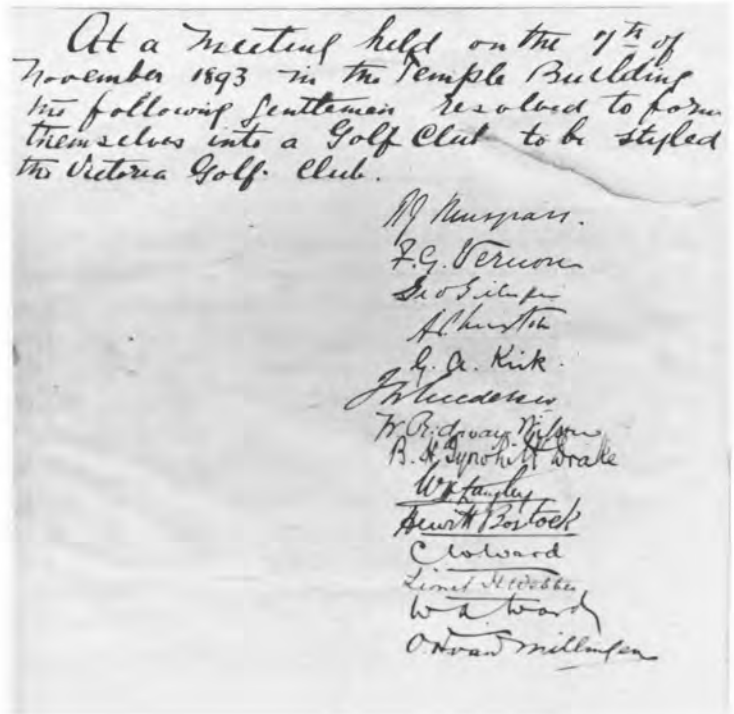 At a Meeting held on the 7th of
November 1893 in the Temple Building
the following Gentlemen resolved to form
themselves into a Golf Club to be styled
the Victoria Golf Club.
F. G. Vernon
Geo Gillespie
G. A. Kirk.
W. Ridgway Wilson
B. H. Tyrwhitt Drake
W H Langley
Hewitt Bostock
C W Ward
Lionel H Webber
W A Ward
O. H van Millingen